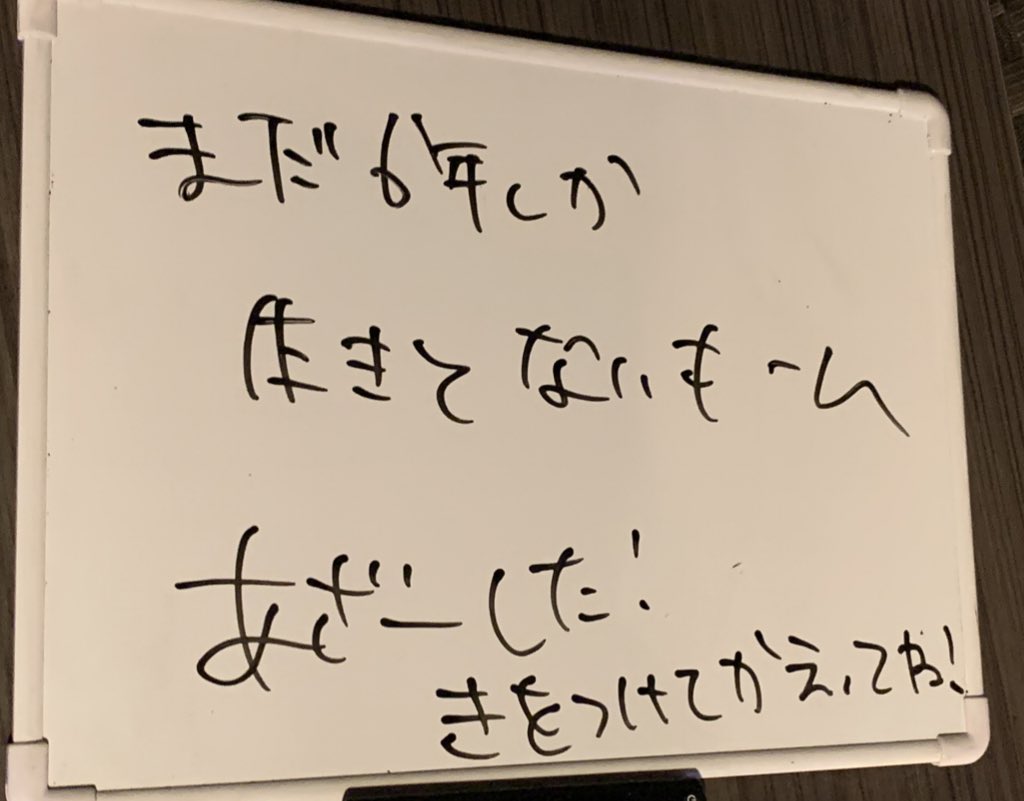 まだ6年しか
生きてないもーん
あざーした!
きをつけてかえってね!